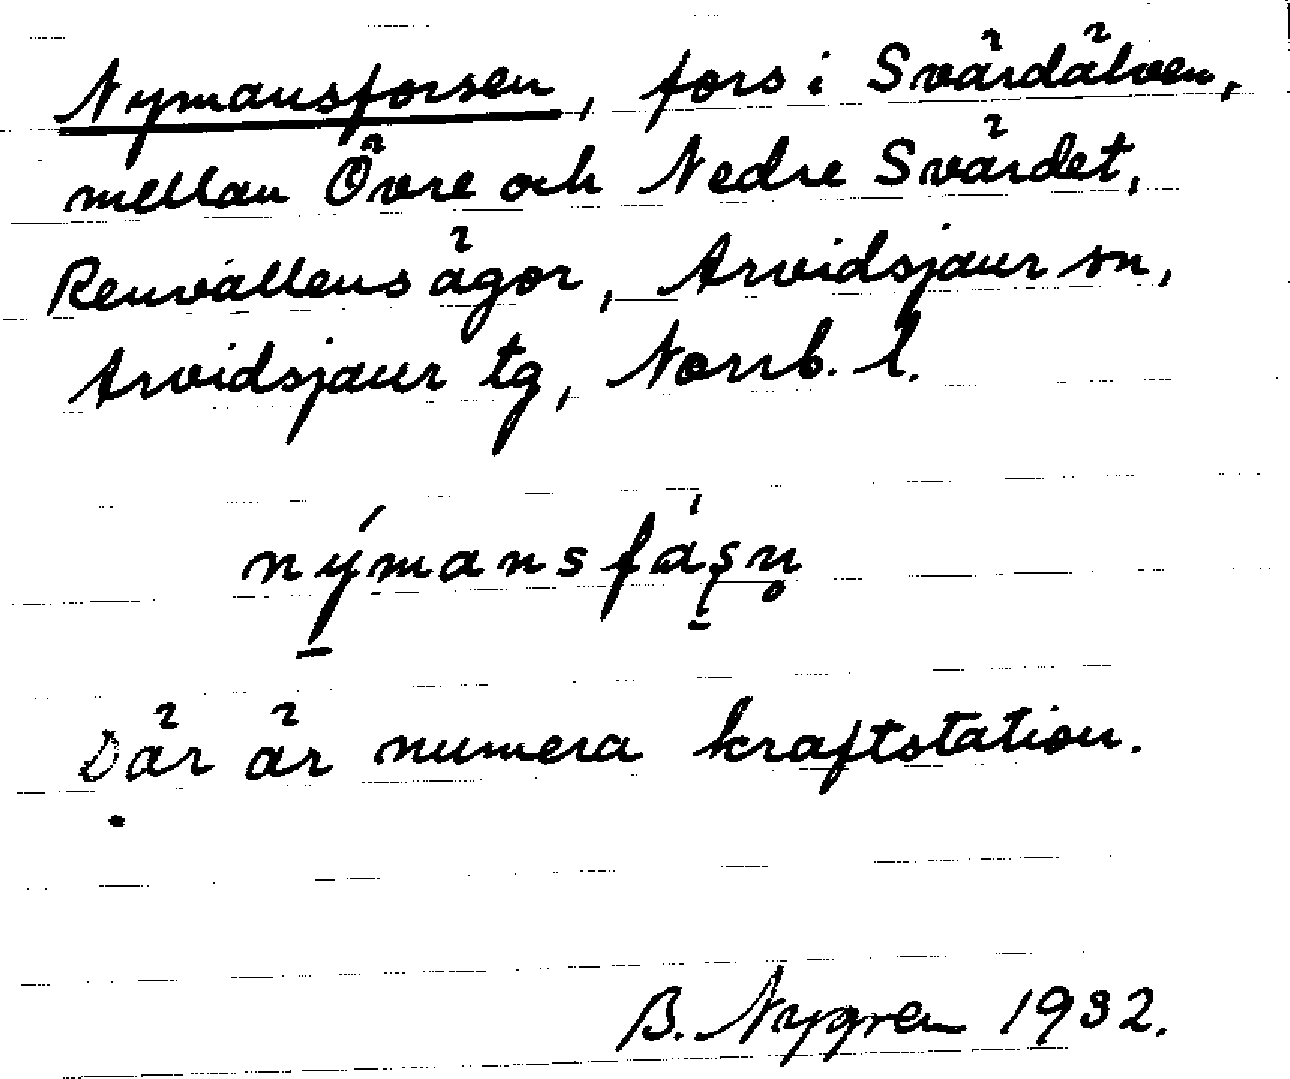 Nymansforsen, fors i Svärdälven,
mellan Övre och Nedre Svärdet,
Renvallens ägor, Arvidsjaur sn,
Arvidsjaur tg, Norrb. l.
nýmansfáşn̥
Där är numera kraftstation.
B. Nygren 1932.